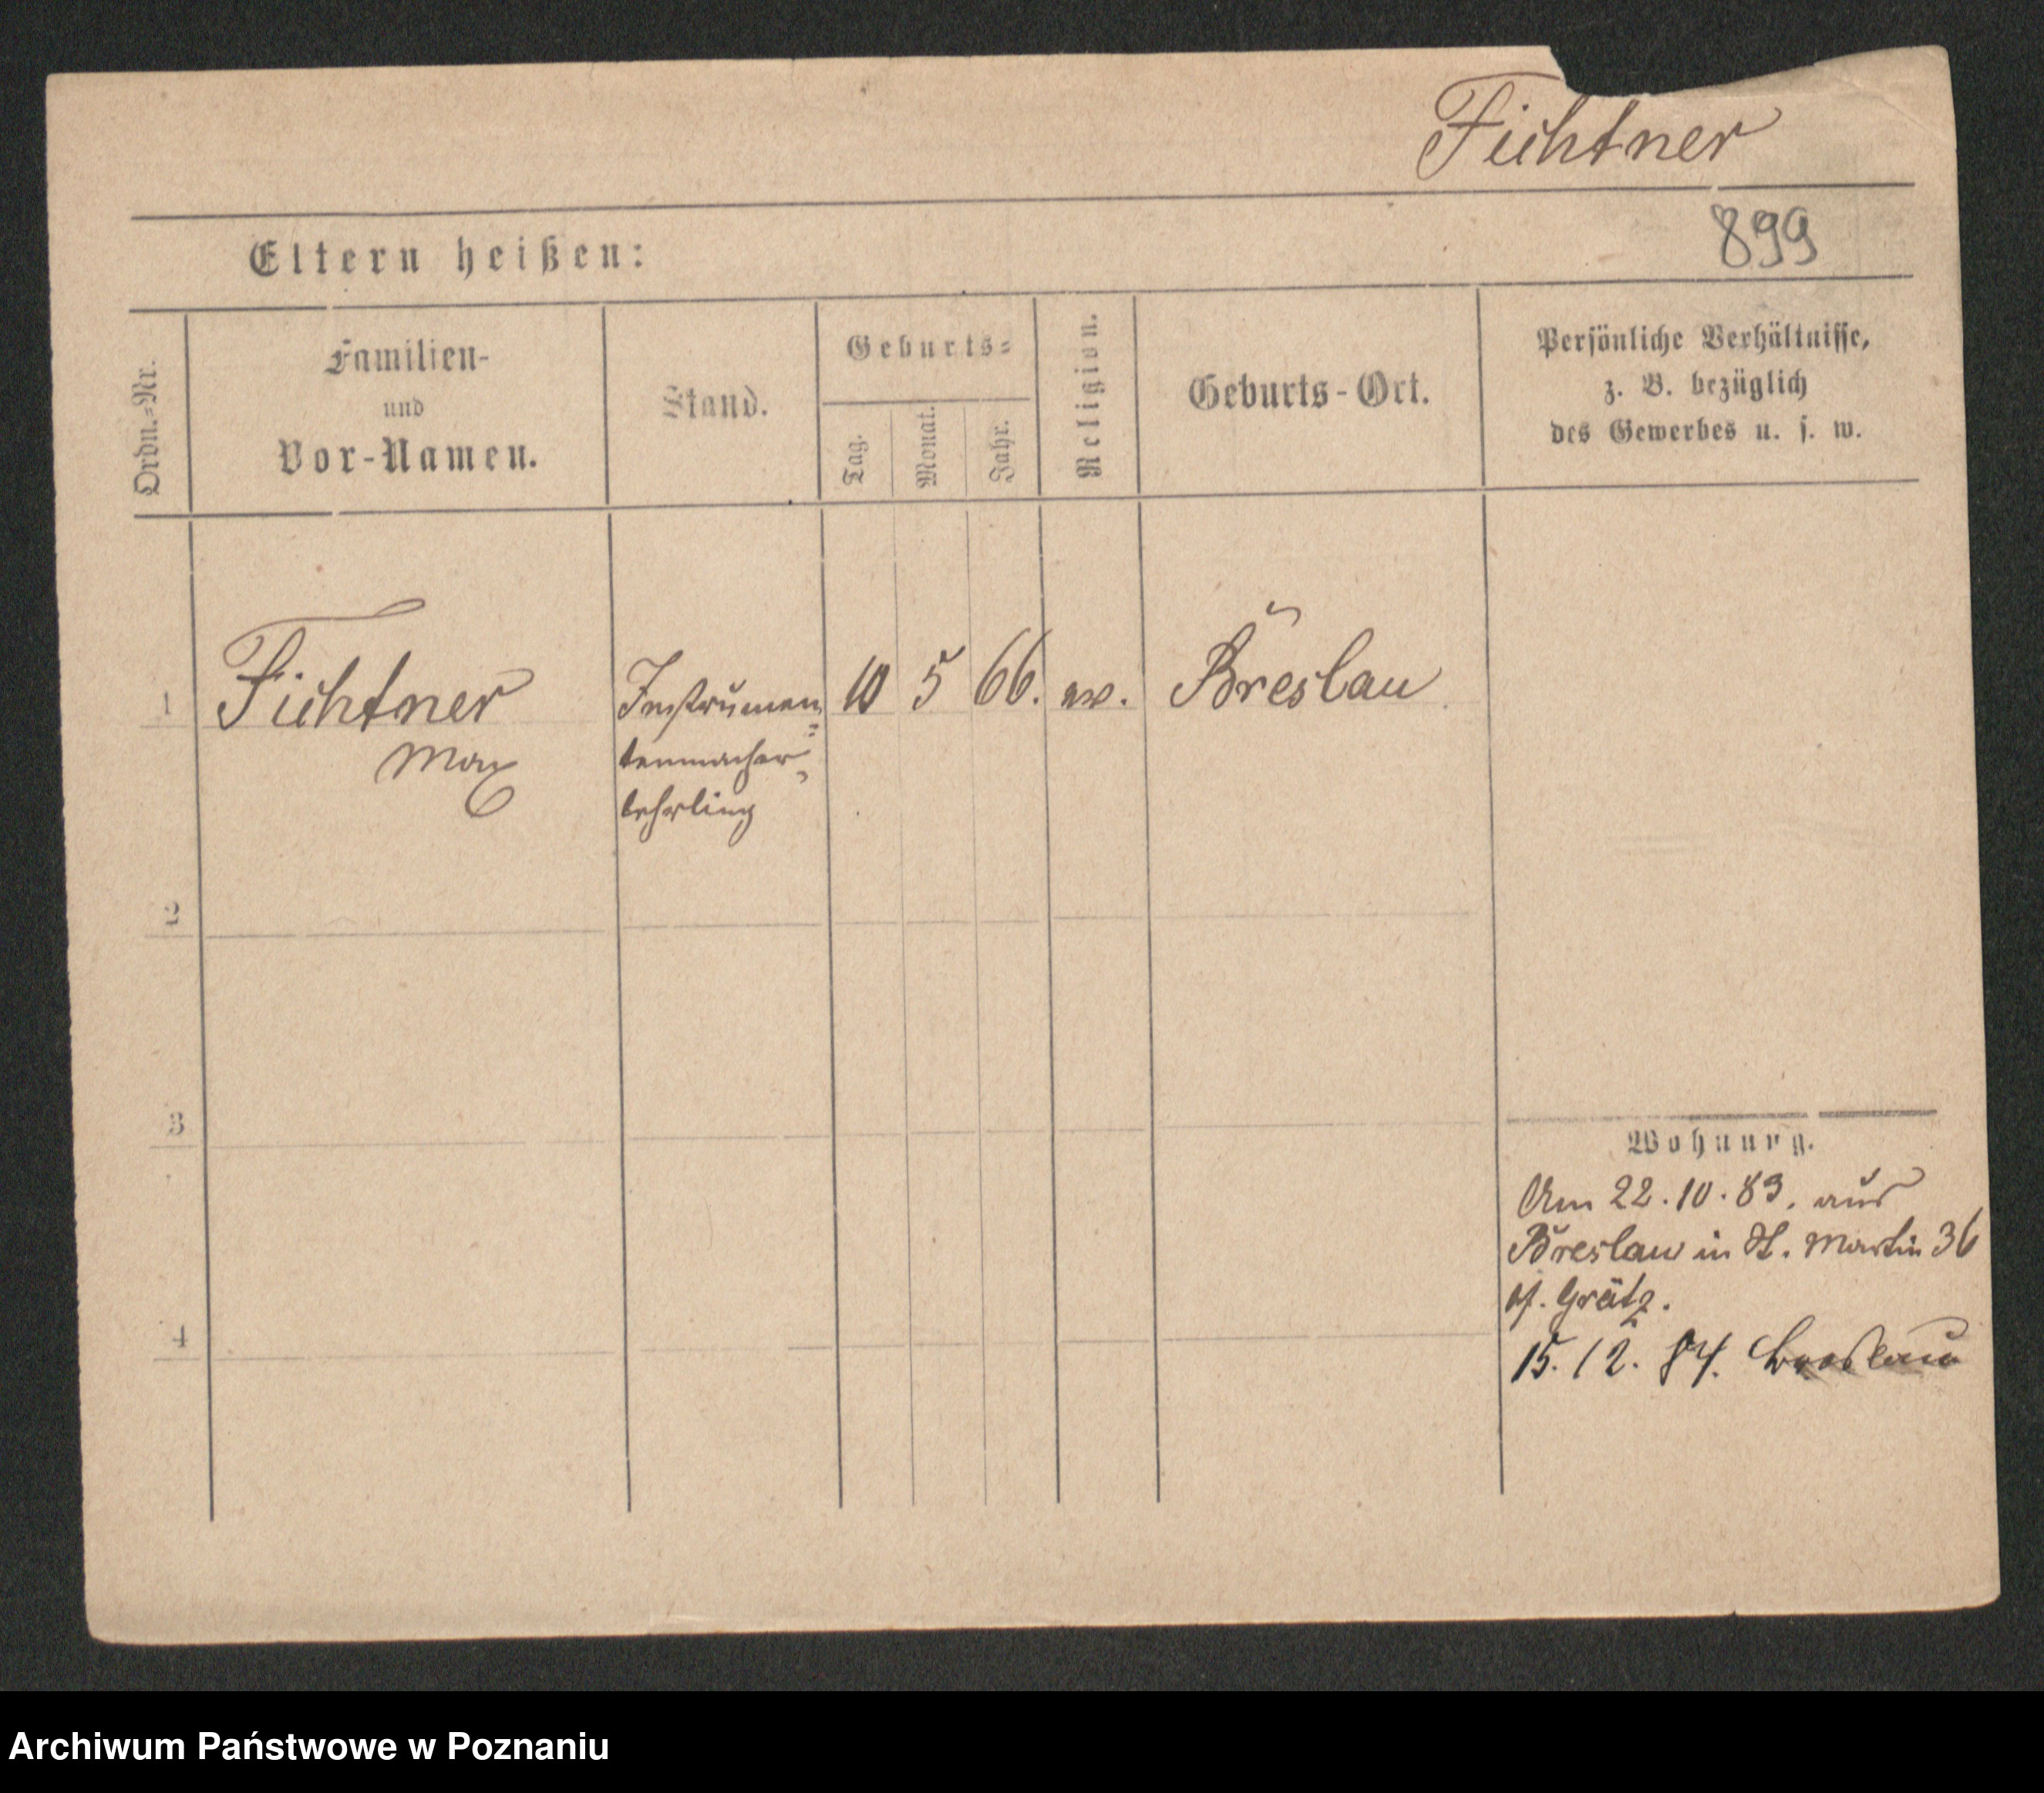 Fichtner
899
Eltern heißen:
Ordn.-Nr.
Familien-
und
Vor-Namen.
Stand.
Geburts-
Tag.
Monat.
Jahr.
Religion.
Geburts-Ort.
Persönliche Verhältnisse,
z. B. bezüglich
des Gewerbes u. s. w.
1
Fichtner
Max
Instrumen=
tenmacher-
lehrling
10
5
66.
ev.
Breslau
2
3
4
Wohnung.
Am 22.10.83. aus
Breslau in St. Martin 36
Grätz.
15.12.84. Breslau
Archiwum Państwowe w Poznaniu